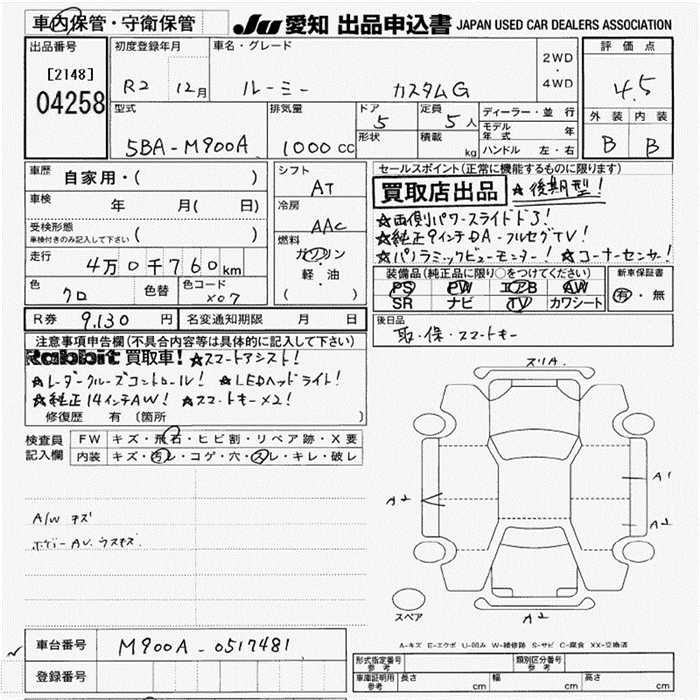 車内保管・守衛保管
JU 愛知 出品申込書 JAPAN USED CAR DEALERS ASSOCIATION
出品番号
[2148]
04258
初度登録年月
R2 12月
車名・グレード
ルーミー カスタムG
2WD
・
4WD
評価点
4.5
外装 内装
B B
型式
5BA-M900A
排気量
1000cc
ドア
5
定員
5人
形状
積載
kg
ディーラー・並行
モデル年式 年
ハンドル 左・右
車歴
自家用・( )
車検
年 月( 日)
受検形態
車検付きのみ記入して下さい ( )
走行
4万0千760km
色
クロ
色替
色コード
X07
シフト
AT
冷房
AAC
燃料
ガソリン
・
軽・油
( )
セールスポイント(正常に機能するものに限ります)
買取店出品 ★後期型!
★両側パワースライドドS!
★純正9インチDA-フルセグTV!
★パノラミックビューモニター! ★コーナーセンサー!
装備品(純正品に限り○をつけてください)
PS PW エアB AW
SR ナビ TV カワシート
新車保証書
有・無
R券 9,130円
名変通知期限 月 日
後日品
取・保・スマートキー
注意事項申告欄(不具合内容等は具体的に記入して下さい)
Rabbit 買取車! ★スマートアシスト!
★レーダークルーズコントロール! ★LEDヘッドライト!
★純正14インチAW! ★スマートキー×2!
修復歴 有 〔箇所 〕
検査員
記入欄
FW キズ・飛石・ヒビ割・リペア跡・X要
内装 キズ・汚レ・コゲ・穴・スレ・キレ・破レ
A/W キズ
ボデーAU.ウスキズ
スリA.
A2
A1
A2
A2
スペア
A-キズ E-エクボ U-凹み W-補修跡 S-サビ C-腐食 XX-交換済
車台番号
M900A-0517481
登録番号
形式指定番号
参考
類別区分番号
参考
車庫証明用
参考
長さ cm
幅 cm
高さ cm